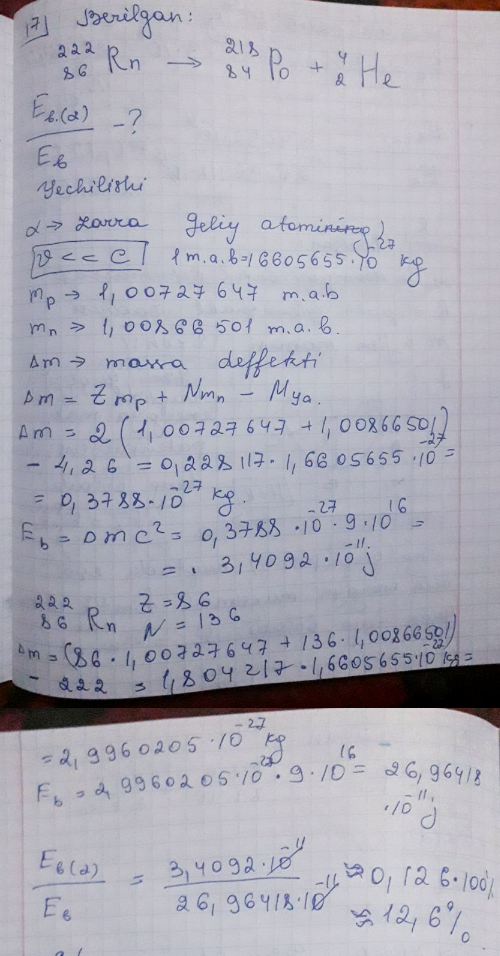 17] Berilgan:
²²²₈₆Rn → ²¹⁸₈₄Po + ⁴₂He
E_в.(α) / E_в - ?
Yechilishi
α → zarra geliy atomining)
ϑ << C 1 m.a.b = 1,6605655 · 10⁻²⁷ kg
m_p → 1,00727647 m.a.b
m_n → 1,00866501 m.a.b.
Δm → massa deffekti
Δm = Zm_p + Nm_n - M_ya.
Δm = 2 (1,00727647 + 1,00866501)
- 4,26 = 0,228117 · 1,6605655 · 10⁻²⁷ =
= 0,3788 · 10⁻²⁷ kg.
E_b = Δmc² = 0,3788 · 10⁻²⁷ · 9 · 10¹⁶ =
= . 3,4092 · 10⁻¹¹ j
²²²₈₆Rn Z = 86
N = 136
Δm = (86 · 1,00727647 + 136 · 1,00866501)
- 222 = 1,804217 · 1,6605655 · 10⁻²⁷ kg =
= 2,9960205 · 10⁻²⁷ kg
E_b = 2,9960205 · 10⁻²⁷ · 9 · 10¹⁶ = 26,96418
· 10⁻¹¹ j
E_в(α) / E_в = 3,4092 · 10⁻¹¹ / 26,96418 · 10⁻¹¹ ≈ 0,126 · 100%
≈ 12,6%